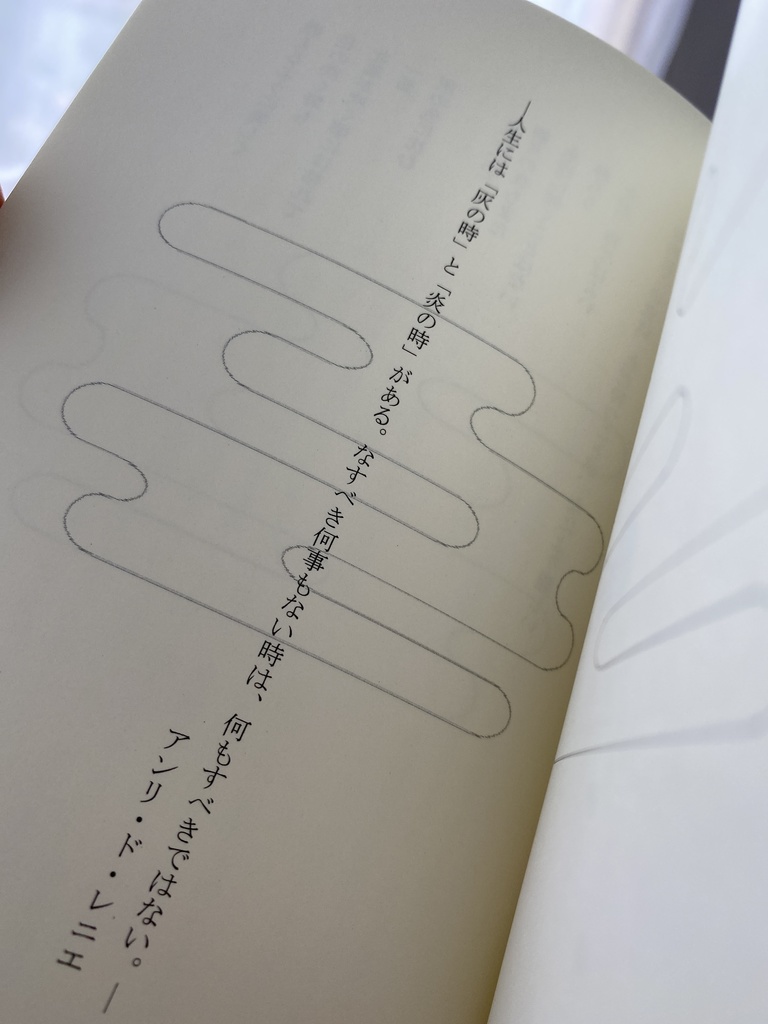 ―人生には「灰の時」と「炎の時」がある。なすべき何事もない時は、何もすべきではない。―
アンリ・ド・レニエ